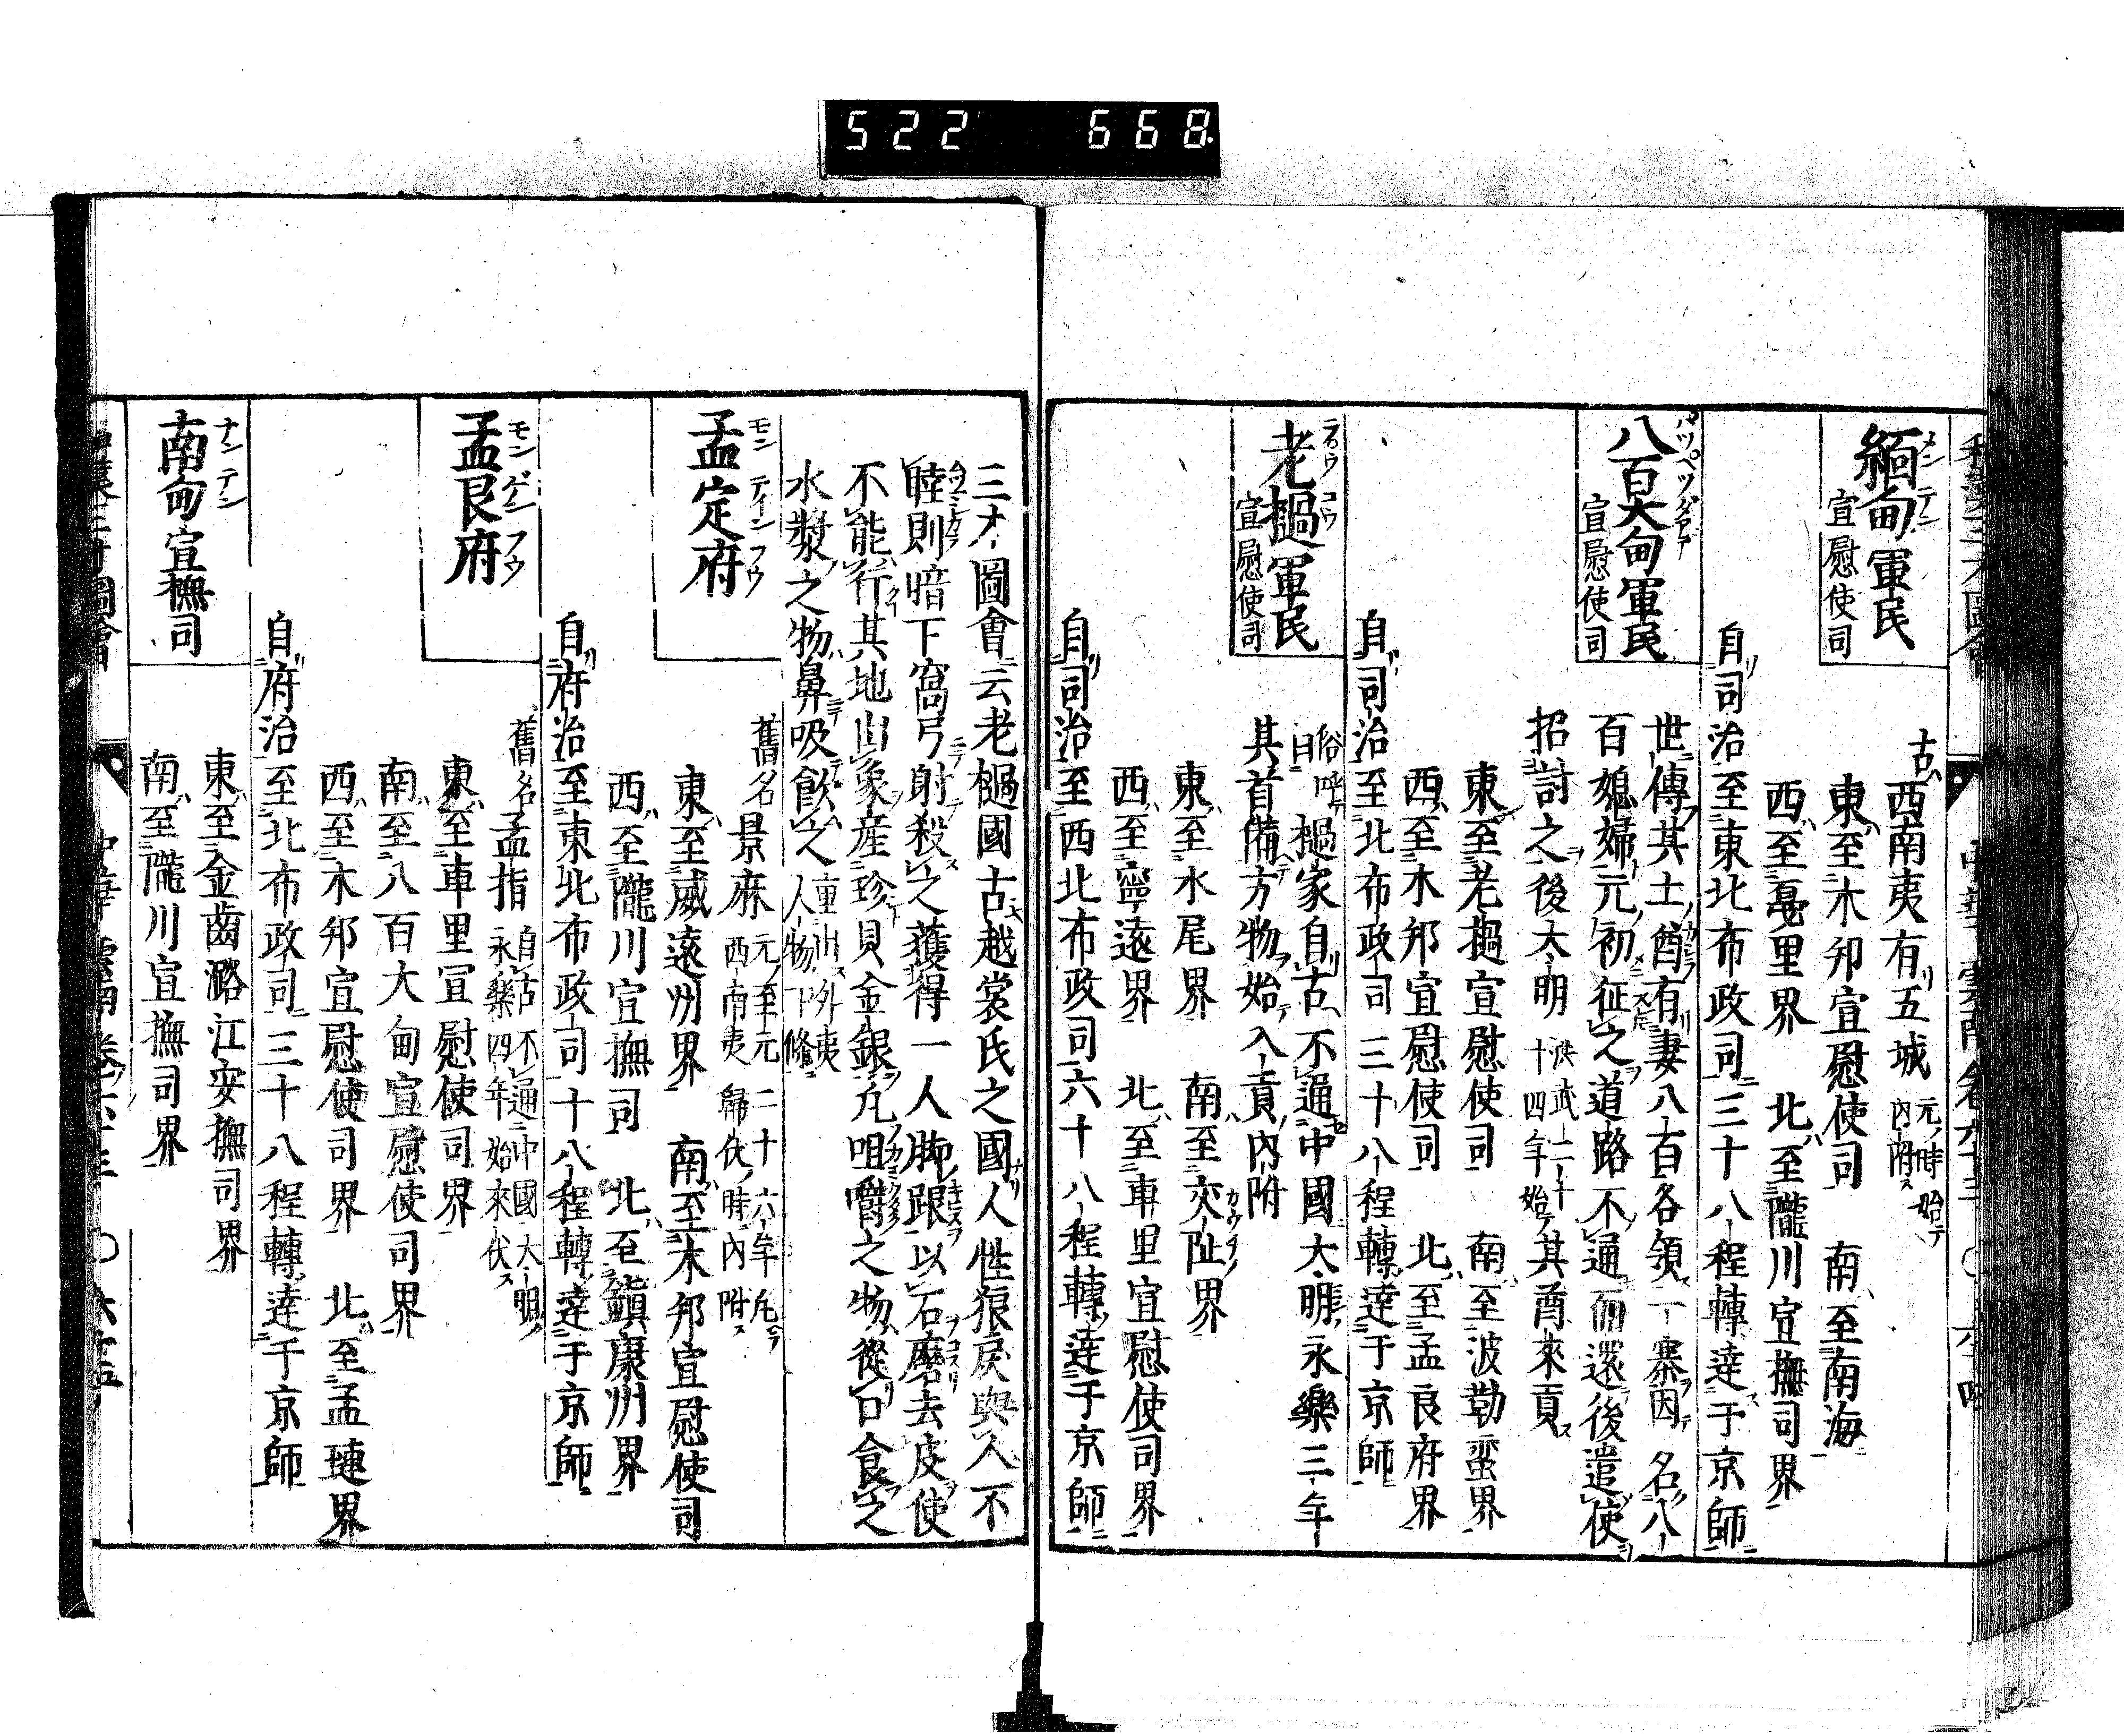 522 668
緬甸軍民
宣慰使司
メン テン
古ハ西南夷有五城 元ノ時始テ内附ス
東至木邦宣慰使司 南至南海
西至戞里界 北至隴川宣撫司界
自司治至東北布政司三十八程轉達于京師
八百大甸軍民
宣慰使司
世傳其土酋有妻八百各領一寨因名八
百媳婦元初征之道路不通而還後遣使
招討之後大明 洪武二十十四年始テ 其酋來貢
東至老撾宣慰使司 南至波勒蛮界
西至木邦宣慰使司 北至孟艮府界
自司治至北布政司三十八程轉達于京師
老撾軍民
宣慰使司
俗呼曰撾家自古不通中國大明永樂三年
其首備方物始入貢内附
東至水尾界 南至交趾界
西至寧遠界 北至車里宣慰使司界
自司治至西北布政司六十八程轉達于京師
三才圖會云老撾國古越裳氏之國人性狠戾與人不
睦則暗下窩弓射殺之獲得一人脚跟以石磨去皮使
不能行其地出象産珍貝金銀凢咀嚼之物從口食之
水漿之物鼻吸飲之
孟定府
モン テイン フウ
舊名景麻 元ノ至元二十六年凢 西南夷歸伏ノ時内附ス
東至威遠州界 南至木邦宣慰使司
西至隴川宣撫司 北至鎮康州界
自府治至東北布政司十八程轉達于京師
孟艮府
モン ゲン フウ
舊名孟指 自古不通中國大明ノ 永樂四年始來伏ス
東至車里宣慰使司界
南至八百大甸宣慰使司界
西至木邦宣慰使司界 北至孟璉界
自府治至北布政司三十八程轉達于京師
南甸宣撫司
ナン テン
東至金齒潞江安撫司界
南至隴川宣撫司界